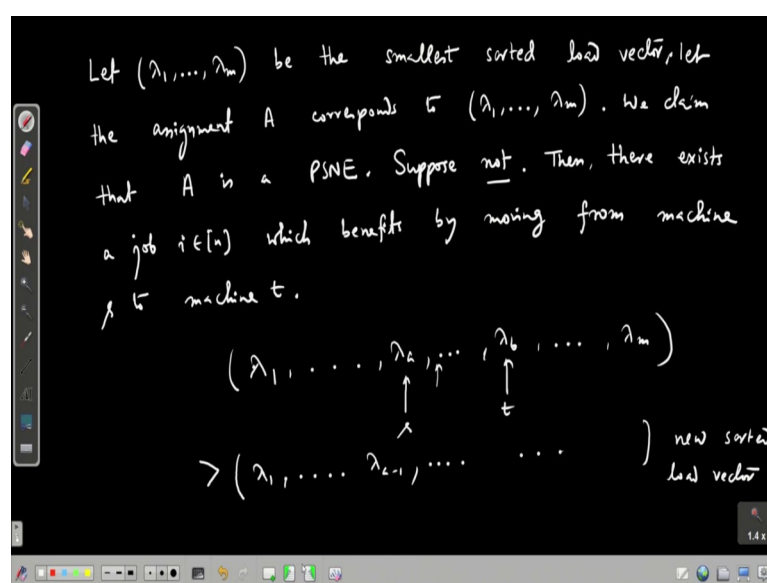 Let (λ₁,..., λₘ) be the smallest sorted load vector, let
the assignment A corresponds to (λ₁,..., λₘ). We claim
that A is a PSNE. Suppose not. Then, there exists
a job i ∈ [n] which benefits by moving from machine
s to machine t.
(λ₁, . . . . , λₐ, ... , λ_b , ... , λₘ)
s t
> (λ₁, .... λₐ₋₁, .... ... ) new sorted
load vector
1.4 x